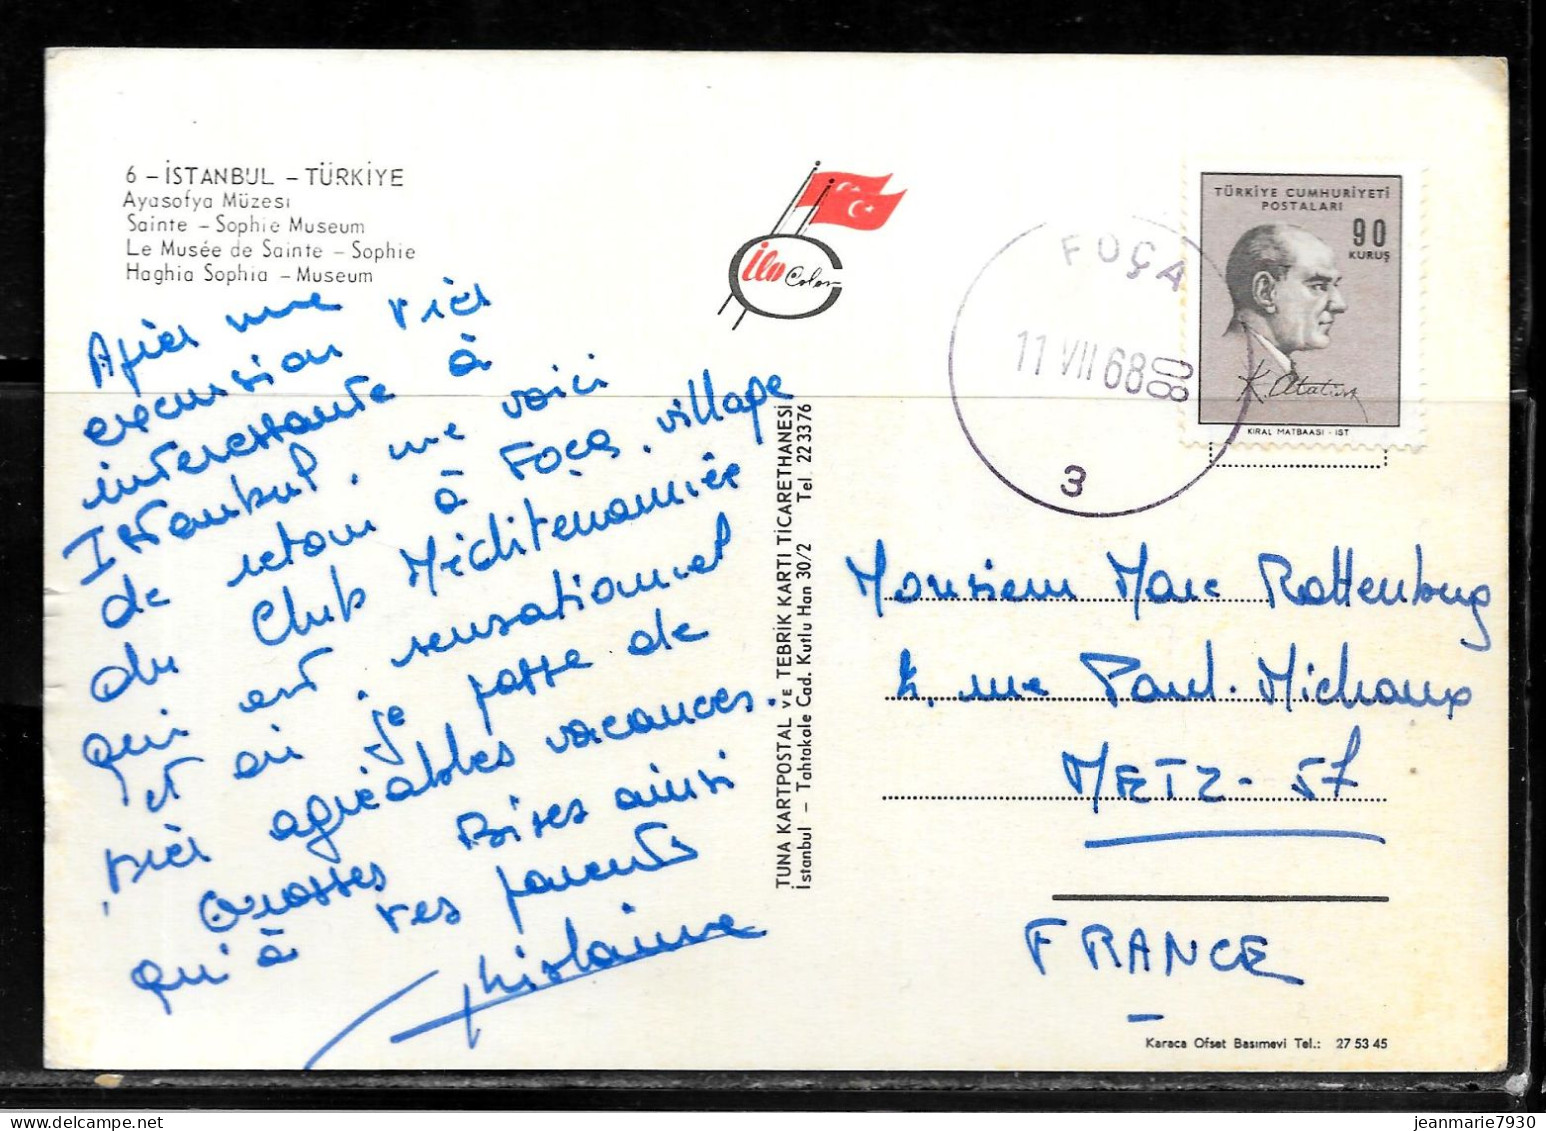 6 – İSTANBUL – TÜRKİYE
Ayasofya Müzesi
Sainte – Sophie Museum
Le Musée de Sainte – Sophie
Haghia Sophia – Museum
Après une
excursion très
interessante à
Istanbul, me voici
de retour à Foça, village
du Club Méditerranée
qui est sensationnel
et où je passe de
très agréables vacances.
Grosses Bises ainsi
qu'à tes parents
Ghislaine
ilo Color
TUNA KARTPOSTAL VE TEBRİK KARTI TİCARETHANESİ
İstanbul – Tahtakale Cad. Kutlu Han 30/2 Tel. 22 33 76
FOÇA
11 VII 68 80
3
TÜRKİYE CUMHURİYETİ
POSTALARI
90
KURUŞ
K. Atatürk
KIRAL MATBAASI - IST
Monsieur Marc Rottenburg
4, rue Paul-Michaux
METZ-57
FRANCE
Karaca Ofset Basımevi Tel.: 27 53 45
jeanmarie7930